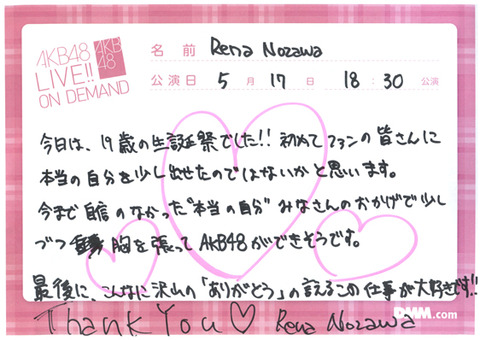 AKB48
LIVE!!
ON DEMAND
AKB
48
名前 Rena Nozawa
公演日 5月17日 18:30公演
今日は、19歳の生誕祭でした!! 初めてファンの皆さんに
本当の自分を少し出せたのではないかと思います。
今まで自信のなかった"本当の自分" みなさんのおかげで少し
づつ 胸を張ってAKB48ができそうです。
最後に、こんなに沢山の「ありがとう」の言えるこの仕事が大好きです!!
Thank You♡ Rena Nozawa
DMM.com